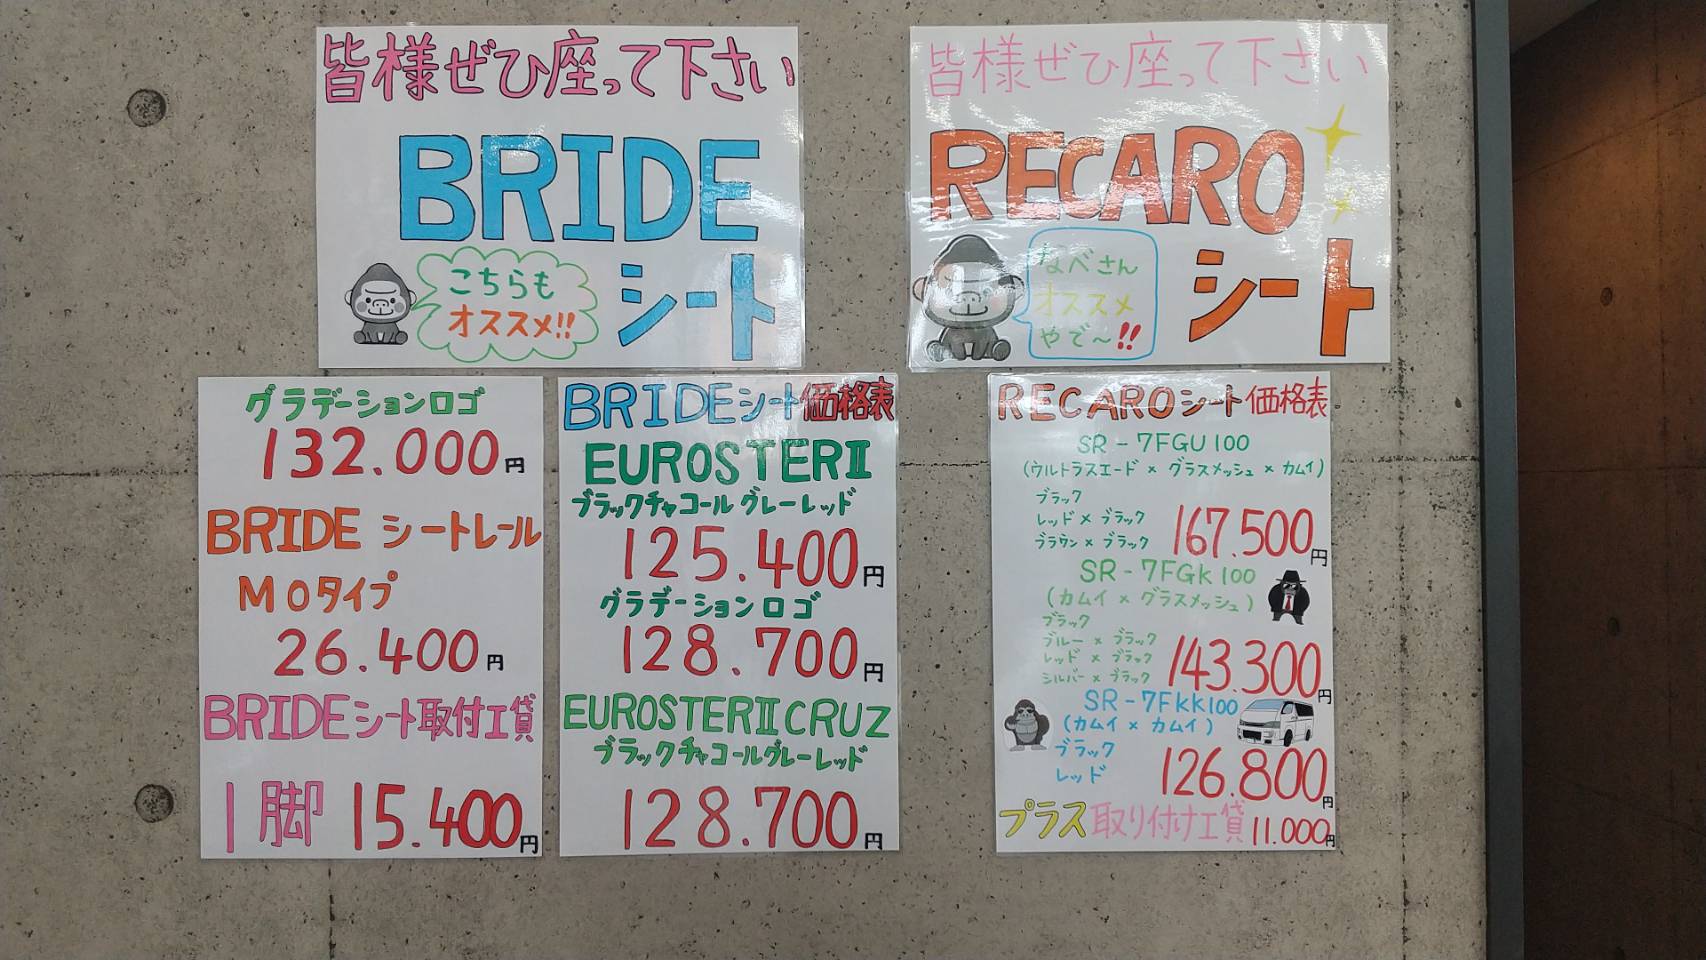 皆様ぜひ座って下さい
BRIDE
シート
こちらも
オススメ!!
皆様ぜひ座って下さい
RECARO
シート
なべさん
オススメ
やで〜!!
BRIDEシート価格表
EUROSTERⅡ
ブラックチャコール グレーレッド
125.400円
グラデーションロゴ
128.700円
EUROSTERⅡCRUZ
ブラックチャコールグレーレッド
128.700円
グラデーションロゴ
132.000円
BRIDE シートレール
MOタイプ
26.400円
BRIDEシート取付工賃
1脚 15.400円
RECAROシート価格表
SR-7FGU100
(ウルトラスエード×グラスメッシュ×カムイ)
ブラック
レッド×ブラック
ブラウン×ブラック
167.500円
SR-7FGK100
(カムイ×グラスメッシュ)
ブラック
ブルー×ブラック
レッド×ブラック
シルバー×ブラック
143.300円
SR-7FKK100
(カムイ×カムイ)
ブラック
レッド
126.800円
プラス取り付け工賃 11.000円